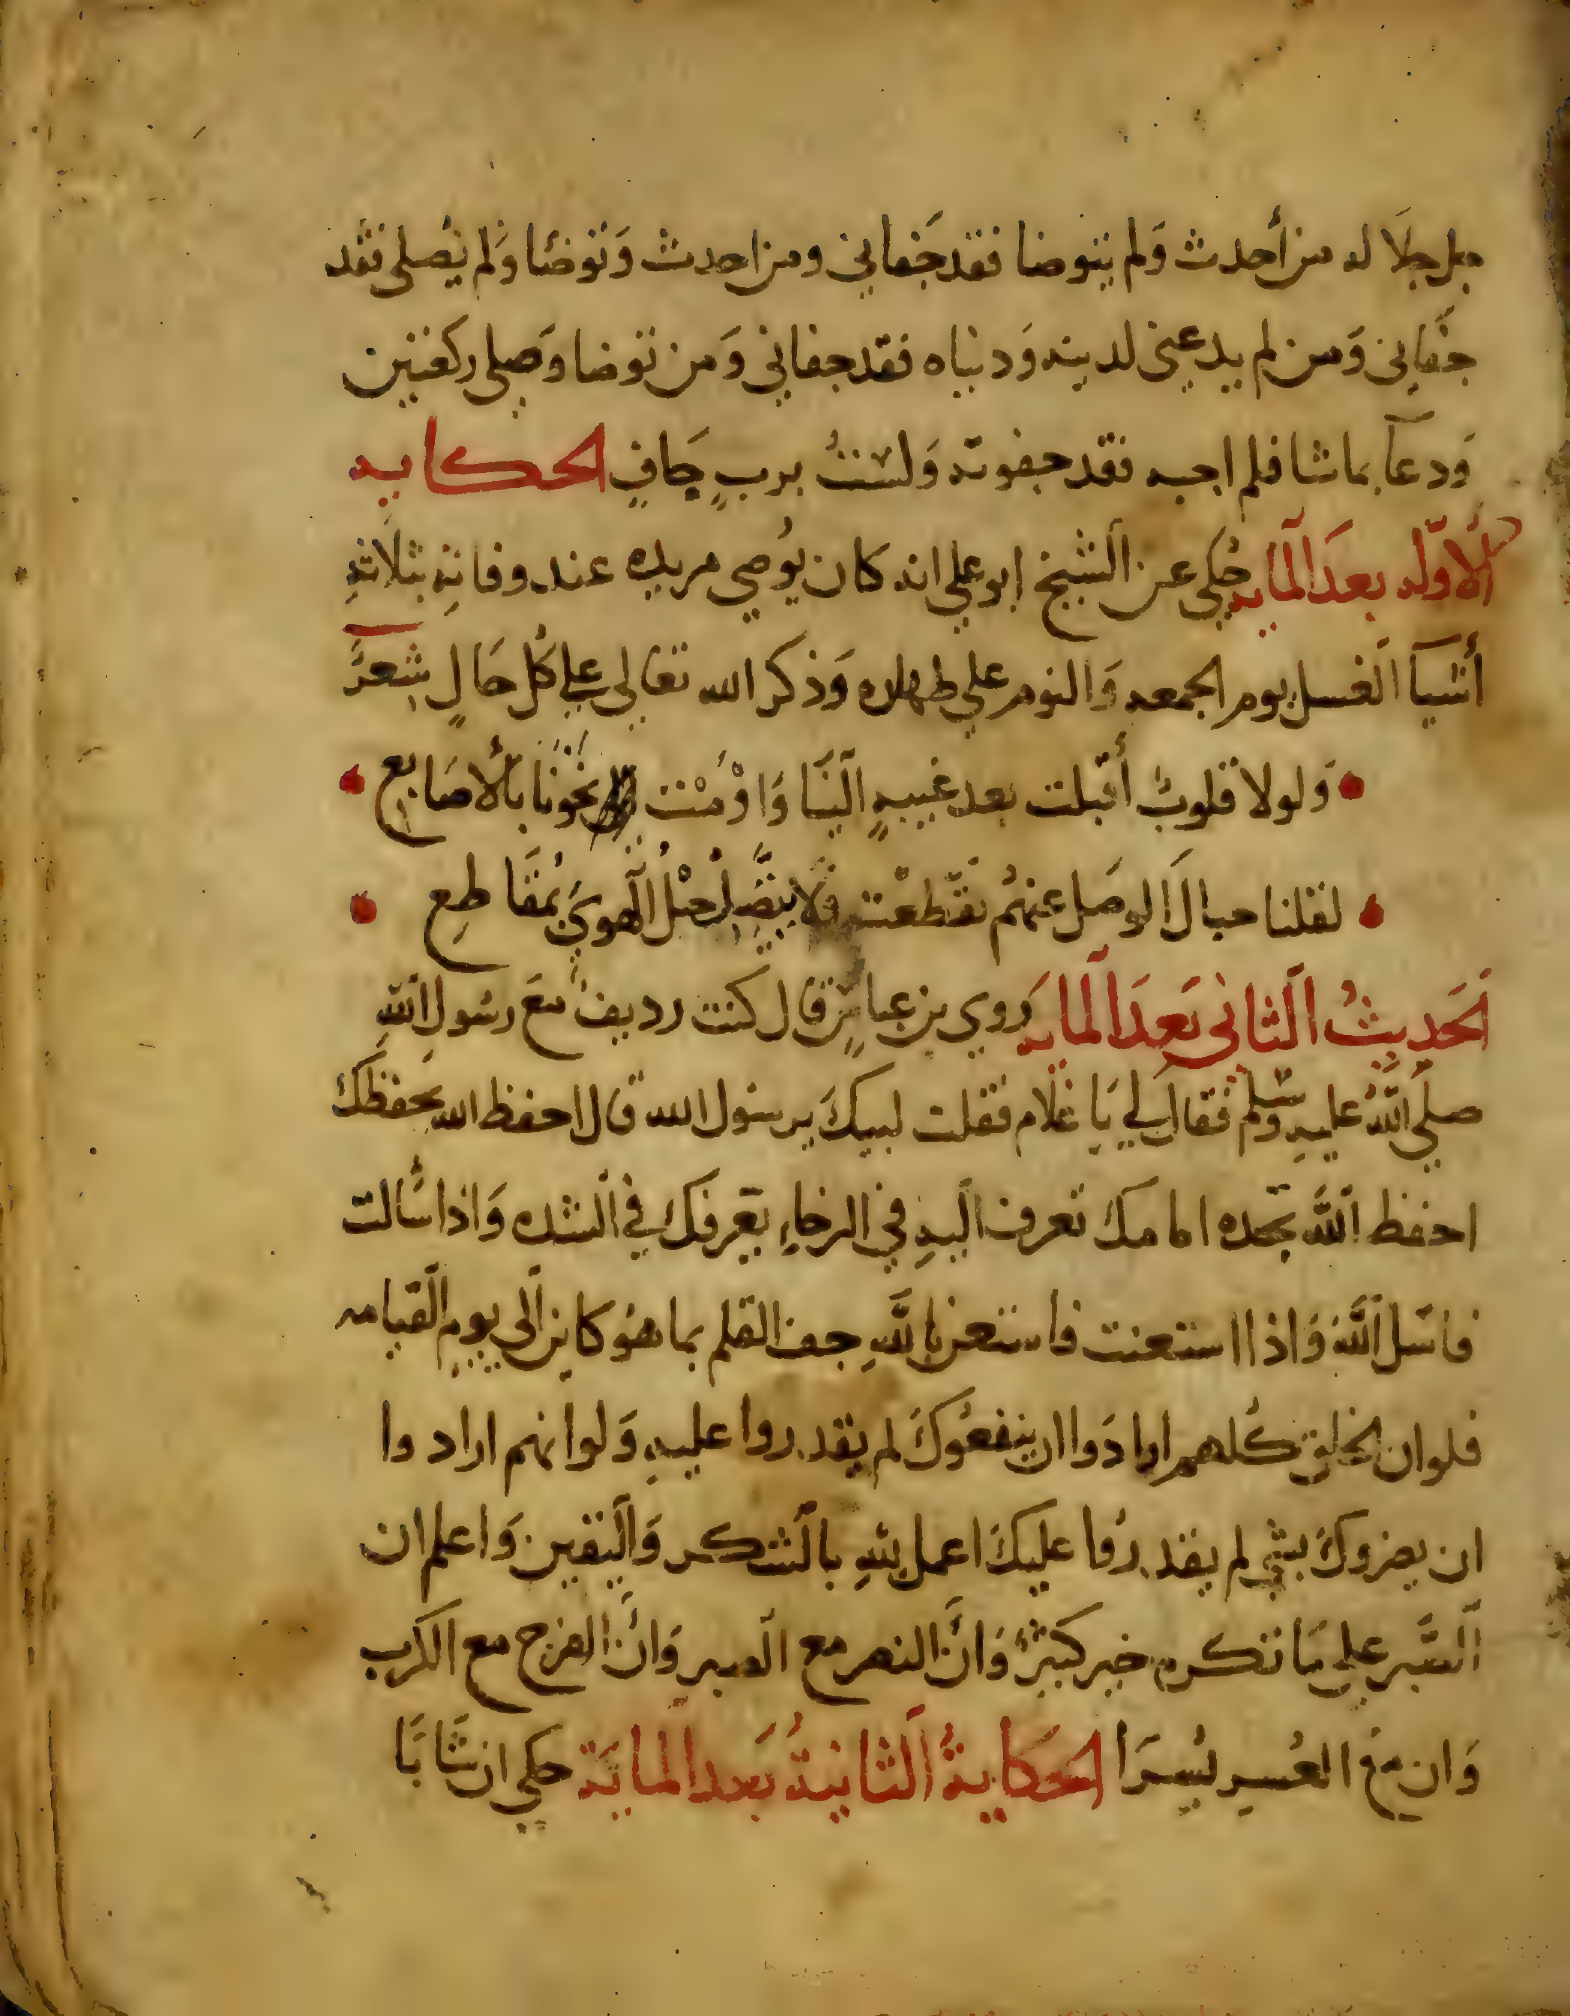 جل جلاله من أحدث وَلم يتوضا فقد جَفاني ومن احدث وَتوضا وَلم يُصلي فقد
جفاني وَمن لم يدعني لدينه وَدنياه فقد جفاني وَمن توضا وَصلي ركعتين
وَدعآ بما شا فلم اجبه فقد جفوته وَلستُ بربٍ جَافٍ الحكايه
الأوّله بعدَ المايه حُكي عن الشيخ ابو علي انه كان يُوصي مريده عند وفاتِه بثلاثةِ
أشيآ الغسل يوم الجمعه وَالنوم علي طهاره وَذكر الله تعالي علي كُل حَالٍ شِعرَّ
وَلولا قلوبٌ أقبلت بعد غيبةٍ الينَا وَاوْمَتْ نحوُنا بالأصَابع
لقلنا حبالَ الوصَل عنهُم تقَطعْت فلا يتصِّل حبْلُ الهويَ بمُقَاطِع
الحَديثُ الثاني بَعدَ المايه رَوي بن عباسٍ قال كنت رديفُ معَ رسُول اللهِ
صلّي اللهُ عليهِ وسَلم فقال لي يَا غلَام فقلت لبيكَ يرسول الله قال احفظ الله يحفظكَ
احفظ اللَّه تجده امامك تعرف اليهِ في الرخاءِ يعَرفكَ في الشده وَاذا سَّالت
فاسَل اللَّهَ وَاذا استعنت فاستعن باللَّهِ جف القلم بما هُو كاين الي يومِ القيامه
فلو ان الخلق كُلهم ارادَوا ان ينفعُوكَ لم يقدروا عليهِ وَلو انهم ارادوا
ان يضروكَ بشي لم يقدروُا عليكَ اعمل للهِ بالشكر وَاليقين وَاعلم ان
الصَّبر علي مَا تكره خير كبيرٌ وَانَّ النصر مع الصبر وَانَّ الفرج مع الكرب
وَان معَ العُسرِ يُسرَا الحَكايةُ الثانيةُ بَعدَ المايَة حكي ان شَابًا